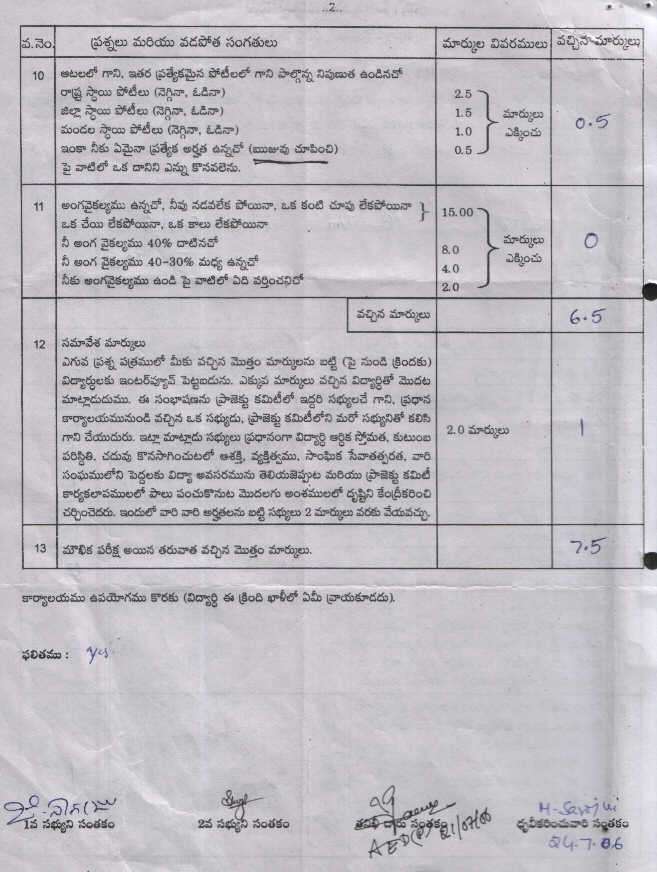 ..2..
వ.నెం. ప్రశ్నలు మరియు వడపోత సంగతులు మార్కుల వివరములు వచ్చిన మార్కులు
10 ఆటలలో గాని, ఇతర ప్రత్యేకమైన పోటీలలో గాని పాల్గొన్న నిపుణుత ఉండినచో
రాష్ట్ర స్థాయి పోటీలు (నెగ్గినా, ఓడినా) 2.5
జిల్లా స్థాయి పోటీలు (నెగ్గినా, ఓడినా) 1.5 మార్కులు 0.5
మండల స్థాయి పోటీలు (నెగ్గినా, ఓడినా) 1.0 ఎక్కించు
ఇంకా నీకు ఏమైనా ప్రత్యేక అర్హత ఉన్నచో (ఋజువు చూపించి) 0.5
పై వాటిలో ఒక దానిని ఎన్ను కొనవలెను.
11 అంగవైకల్యము ఉన్నచో, నీవు నడవలేక పోయినా, ఒక కంటి చూపు లేకపోయినా 15.00
ఒక చేయి లేకపోయినా, ఒక కాలు లేకపోయినా
నీ అంగ వైకల్యము 40% దాటినచో 8.0 మార్కులు 0
నీ అంగ వైకల్యము 40-30% మధ్య ఉన్నచో 4.0 ఎక్కించు
నీకు అంగవైకల్యము ఉండి పై వాటిలో ఏది వర్తించనిచో 2.0
వచ్చిన మార్కులు 6.5
12 సమావేశ మార్కులు
ఎగువ ప్రశ్న పత్రములో మీకు వచ్చిన మొత్తం మార్కులను బట్టి (పై నుండి క్రిందకు)
విద్యార్థులకు ఇంటర్‌వ్యూవ్ పెట్టబడును. ఎక్కువ మార్కులు వచ్చిన విద్యార్థితో మొదట
మాట్లాడుదుము. ఈ సంభాషణను ప్రాజెక్టు కమిటీలో ఇద్దరి సభ్యులచే గాని, ప్రధాన
కార్యాలయమునుండి వచ్చిన ఒక సభ్యుడు, ప్రాజెక్టు కమిటీలోని మరో సభ్యునితో కలిసి
గాని చేయుదురు. ఇట్లా మాట్లాడు సభ్యులు ప్రధానంగా విద్యార్థి ఆర్థిక స్తోమత, కుటుంబ 2.0 మార్కులు 1
పరిస్థితి, చదువు కొనసాగించుటలో ఆశక్తి, వ్యక్తిత్వము, సాంఘిక సేవాతత్పరత, వారి
సంఘములోని పెద్దలకు విద్యా అవసరమును తెలియజెప్పుట మరియు ప్రాజెక్టు కమిటీ
కార్యకలాపములలో పాలు పంచుకొనుట మొదలగు అంశములలో దృష్టిని కేంద్రీకరించి
చర్చించెదరు. ఇందులో వారి వారి అర్హతలను బట్టి సభ్యులు 2 మార్కులు వరకు వేయవచ్చు.
13 మౌఖిక పరీక్ష అయిన తరువాత వచ్చిన మొత్తం మార్కులు. 7.5
కార్యాలయము ఉపయోగము కొరకు (విద్యార్థి ఈ క్రింది ఖాళీలో ఏమీ వ్రాయకూడదు).
ఫలితము :
1వ సభ్యుని సంతకం 2వ సభ్యుని సంతకం తనిఖీ దారు సంతకం ధృవీకరించువారి సంతకం
AED(P) 21/07/06 24.7.06